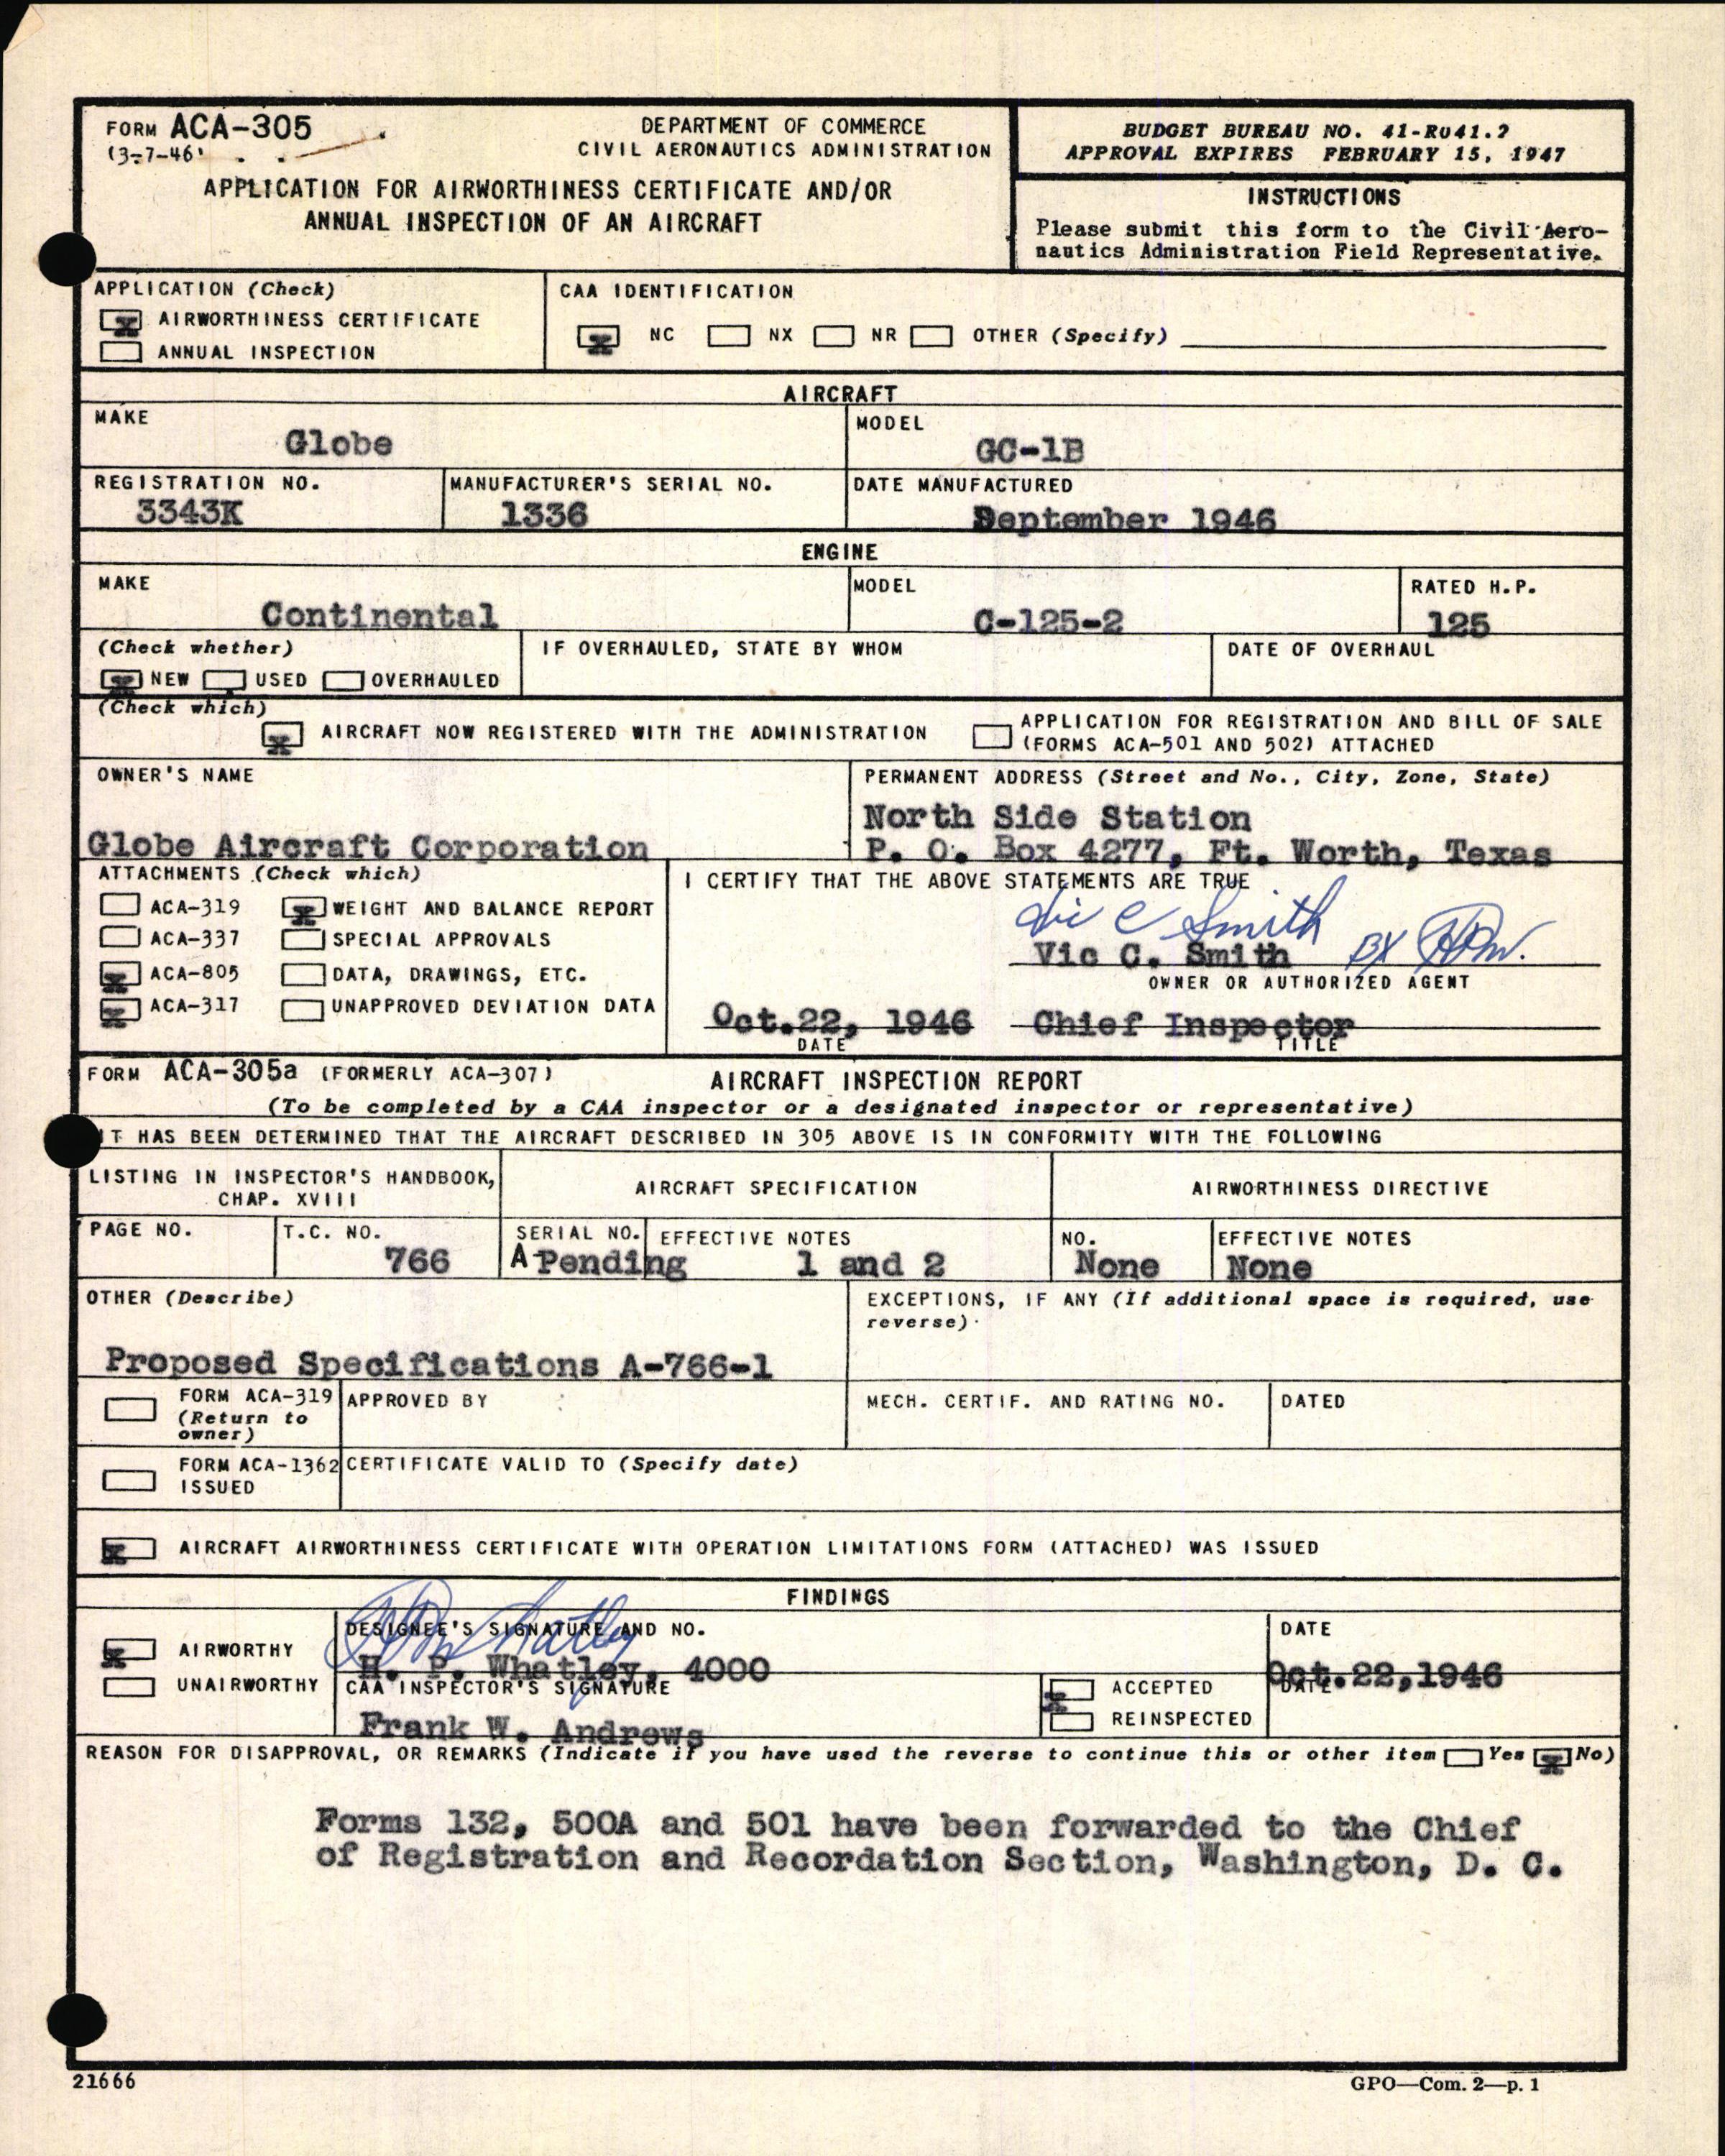 FORM ACA-305
(3-7-46)
DEPARTMENT OF COMMERCE
CIVIL AERONAUTICS ADMINISTRATION
APPLICATION FOR AIRWORTHINESS CERTIFICATE AND/OR
ANNUAL INSPECTION OF AN AIRCRAFT
BUDGET BUREAU NO. 41-R041.2
APPROVAL EXPIRES FEBRUARY 15, 1947
INSTRUCTIONS
Please submit this form to the Civil Aero-
nautics Administration Field Representative.
APPLICATION (Check)
X AIRWORTHINESS CERTIFICATE
ANNUAL INSPECTION
CAA IDENTIFICATION
X NC NX NR OTHER (Specify)
AIRCRAFT
MAKE
Globe
MODEL
GC-1B
REGISTRATION NO.
3343K
MANUFACTURER'S SERIAL NO.
1336
DATE MANUFACTURED
September 1946
ENGINE
MAKE
Continental
MODEL
C-125-2
RATED H.P.
125
(Check whether)
X NEW USED OVERHAULED
IF OVERHAULED, STATE BY WHOM
DATE OF OVERHAUL
(Check which)
X AIRCRAFT NOW REGISTERED WITH THE ADMINISTRATION
APPLICATION FOR REGISTRATION AND BILL OF SALE
(FORMS ACA-501 AND 502) ATTACHED
OWNER'S NAME
Globe Aircraft Corporation
PERMANENT ADDRESS (Street and No., City, Zone, State)
North Side Station
P. O. Box 4277, Ft. Worth, Texas
ATTACHMENTS (Check which)
ACA-319 X WEIGHT AND BALANCE REPORT
ACA-337 SPECIAL APPROVALS
X ACA-805 DATA, DRAWINGS, ETC.
X ACA-317 UNAPPROVED DEVIATION DATA
I CERTIFY THAT THE ABOVE STATEMENTS ARE TRUE
Vic C Smith
Vic C. Smith BY HPW.
OWNER OR AUTHORIZED AGENT
Oct.22, 1946 Chief Inspector
DATE TITLE
FORM ACA-305a (FORMERLY ACA-307)
AIRCRAFT INSPECTION REPORT
(To be completed by a CAA inspector or a designated inspector or representative)
IT HAS BEEN DETERMINED THAT THE AIRCRAFT DESCRIBED IN 305 ABOVE IS IN CONFORMITY WITH THE FOLLOWING
LISTING IN INSPECTOR'S HANDBOOK,
CHAP. XVIII
AIRCRAFT SPECIFICATION
AIRWORTHINESS DIRECTIVE
PAGE NO.
T.C. NO.
766
SERIAL NO.
A Pending
EFFECTIVE NOTES
1 and 2
NO.
None
EFFECTIVE NOTES
None
OTHER (Describe)
Proposed Specifications A-766-1
EXCEPTIONS, IF ANY (If additional space is required, use
reverse)
FORM ACA-319
(Return to
owner)
APPROVED BY
MECH. CERTIF. AND RATING NO.
DATED
FORM ACA-1362
ISSUED
CERTIFICATE VALID TO (Specify date)
X AIRCRAFT AIRWORTHINESS CERTIFICATE WITH OPERATION LIMITATIONS FORM (ATTACHED) WAS ISSUED
FINDINGS
X AIRWORTHY
UNAIRWORTHY
DESIGNEE'S SIGNATURE AND NO.
HP Whatley
H. P. Whatley, 4000
DATE
Oct.22,1946
CAA INSPECTOR'S SIGNATURE
Frank W. Andrews
X ACCEPTED
REINSPECTED
DATE
REASON FOR DISAPPROVAL, OR REMARKS (Indicate if you have used the reverse to continue this or other item Yes X No)
Forms 132, 500A and 501 have been forwarded to the Chief
of Registration and Recordation Section, Washington, D. C.
21666
GPO—Com. 2—p. 1